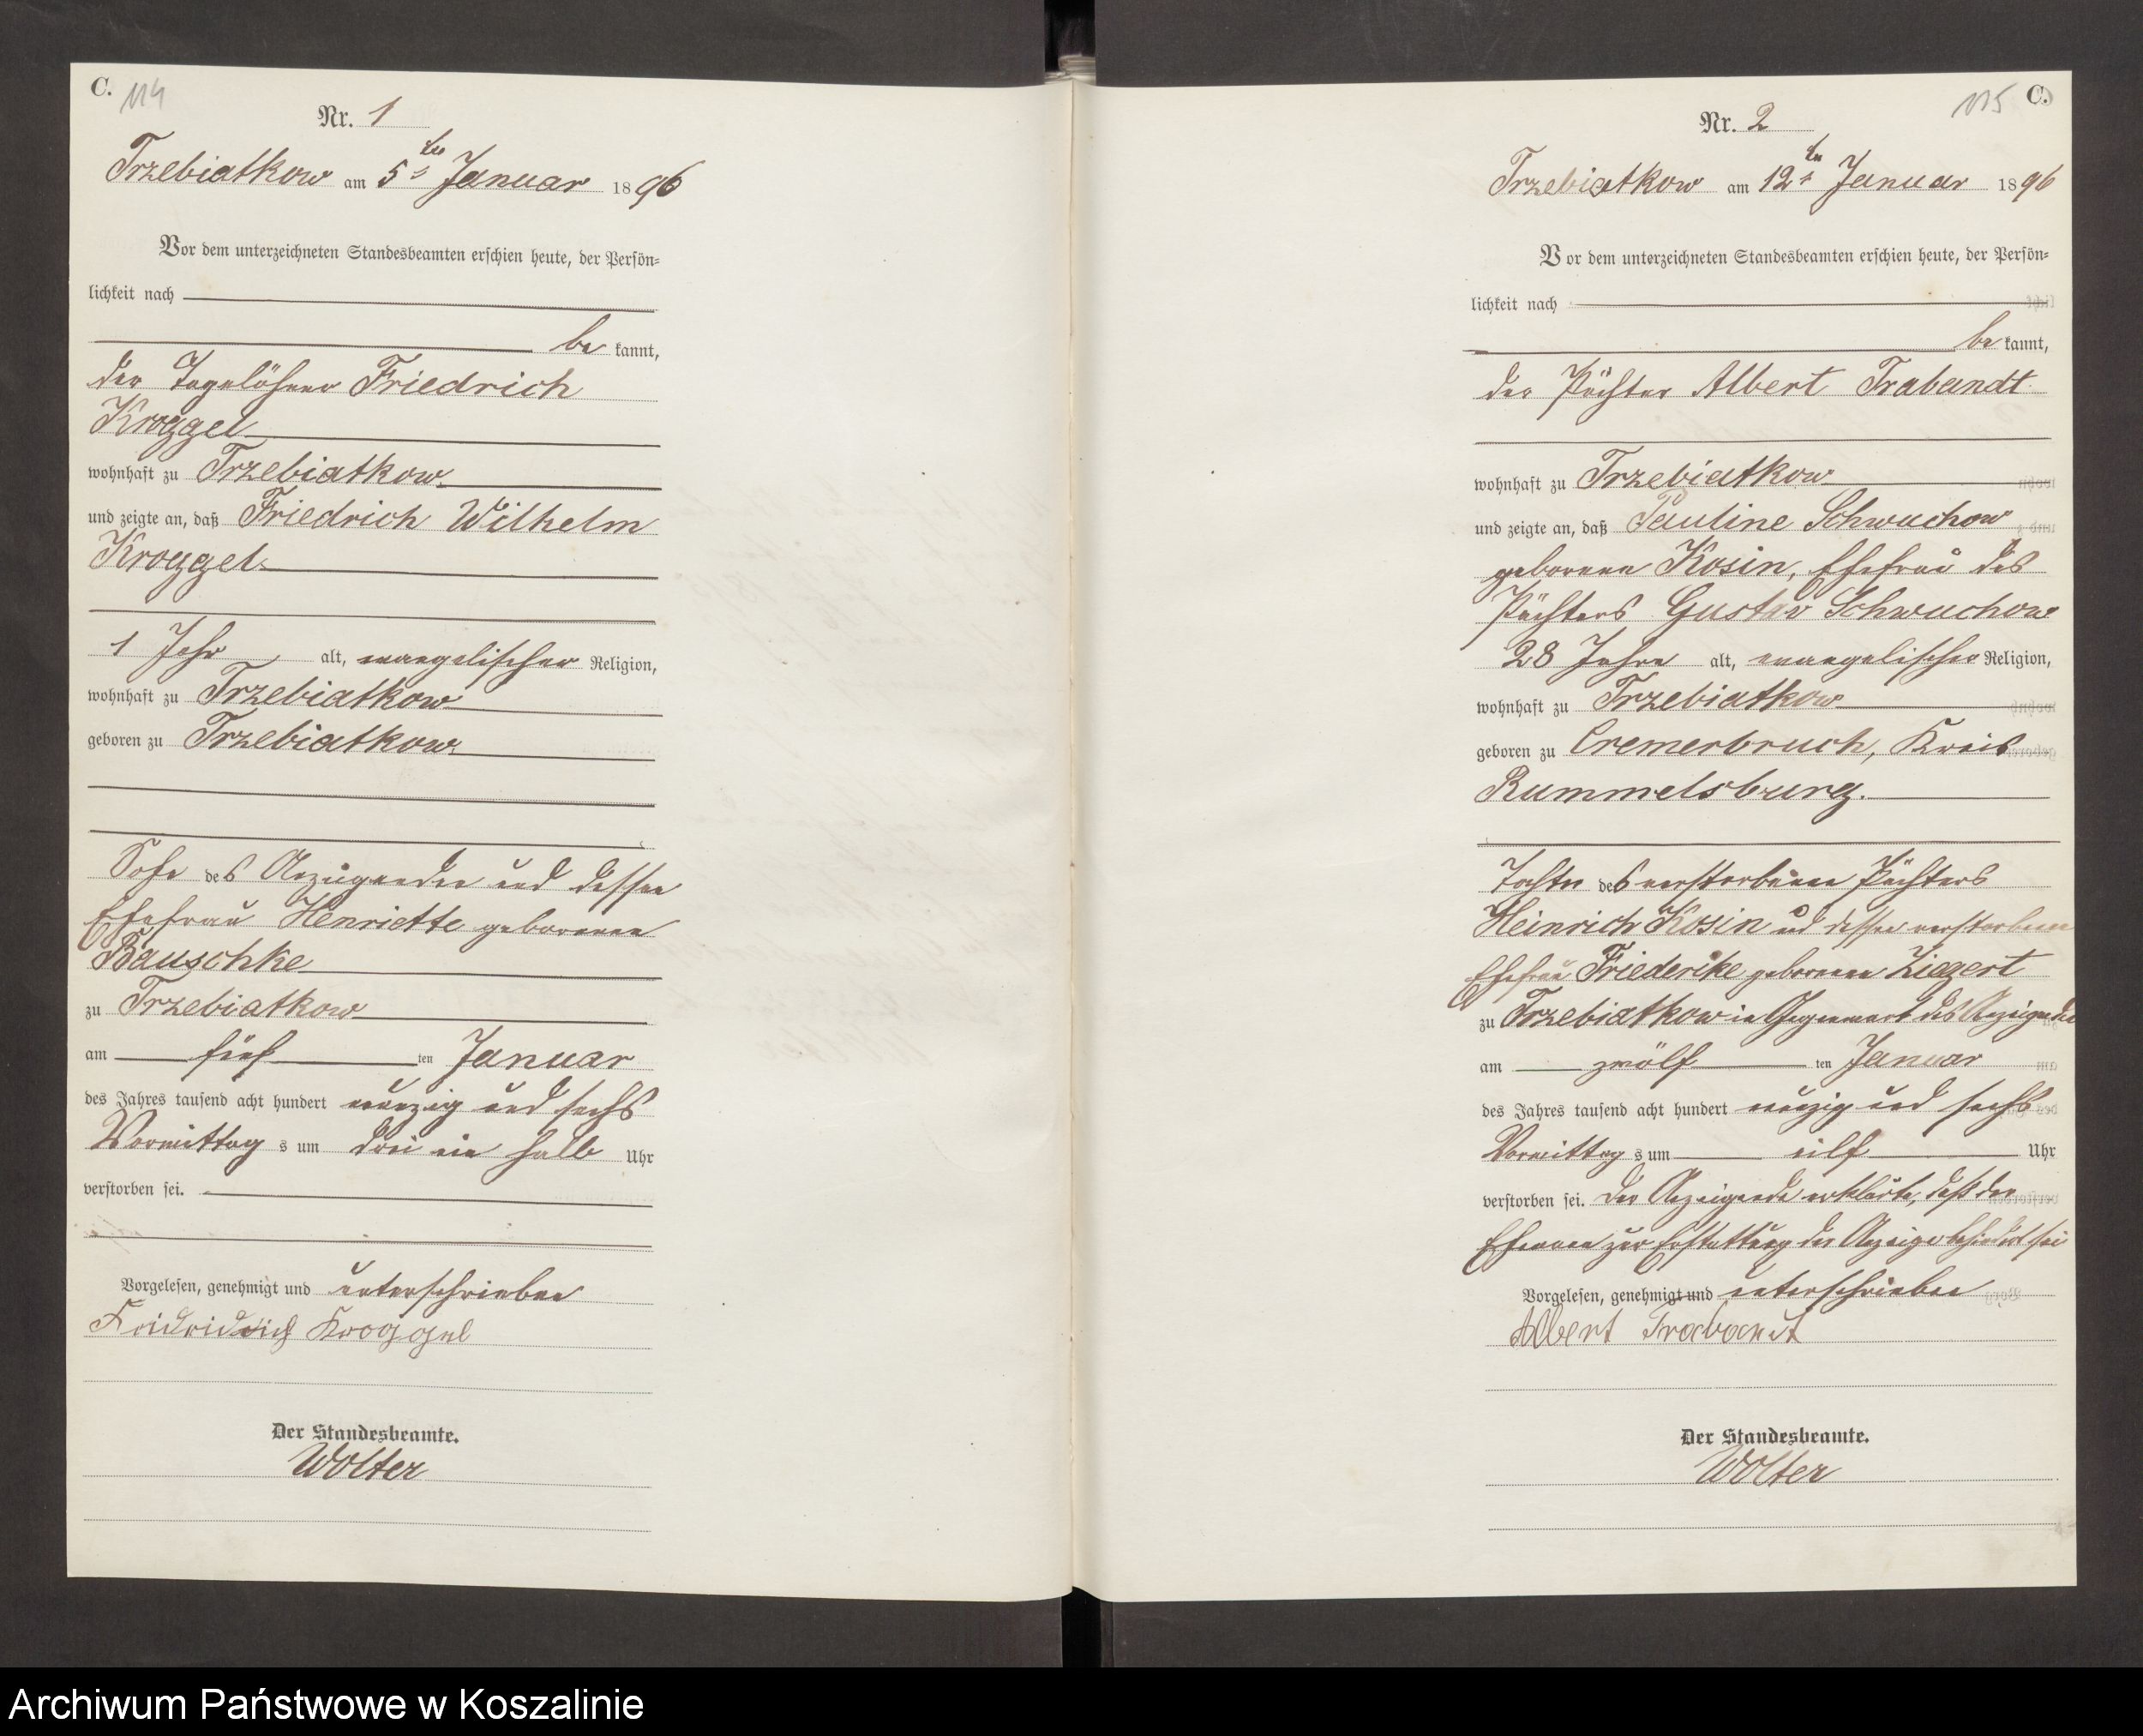 C. 114
Nr. 1
Trzebiatkow am 5ten Januar 1896
Vor dem unterzeichneten Standesbeamten erschien heute, der Persön-
lichkeit nach
be kannt,
der Tagelöhner Friedrich
Kroggel
wohnhaft zu Trzebiatkow
und zeigte an, daß Friedrich Wilhelm
Kroggel
1 Jahr alt, evangelischer Religion,
wohnhaft zu Trzebiatkow
geboren zu Trzebiatkow
Sohn des Anzeigenden und dessen
Ehefrau Henriette geborenen
Bauschke
zu Trzebiatkow
am fünf ten Januar
des Jahres tausend acht hundert neunzig und sechs
Vormittag s um drei ein halb Uhr
verstorben sei.
Vorgelesen, genehmigt und unterschrieben
Fridridrich Kroggel
Der Standesbeamte.
Wolter
115 C.
Nr. 2
Trzebiatkow am 12ten Januar 1896
Vor dem unterzeichneten Standesbeamten erschien heute, der Persön-
lichkeit nach
be kannt,
der Pächter Albert Trabandt
wohnhaft zu Trzebiatkow
und zeigte an, daß Pauline Schwuchow
geborenen Kosin, Ehefrau des
Pächters Gustav Schwuchow
28 Jahre alt, evangelischer Religion,
wohnhaft zu Trzebiatkow
geboren zu Cremerbruch, Kreis
Rummelsburg.
Tochter des verstorbenen Pächters
Heinrich Kosin und dessen verstorbenen
Ehefrau Friederike geborenen Ziegert
zu Trzebiatkow in Gegenwart des Anzeigenden
am zwölf ten Januar
des Jahres tausend acht hundert neunzig und sechs
Vormittag s um eilf Uhr
verstorben sei. Der Anzeigende erklärte, daß der
Ehemann zur Erstattung der Anzeige behindert sei
Vorgelesen, genehmigt und unterschrieben
Albert Trabandt
Der Standesbeamte.
Wolter
Archiwum Państwowe w Koszalinie